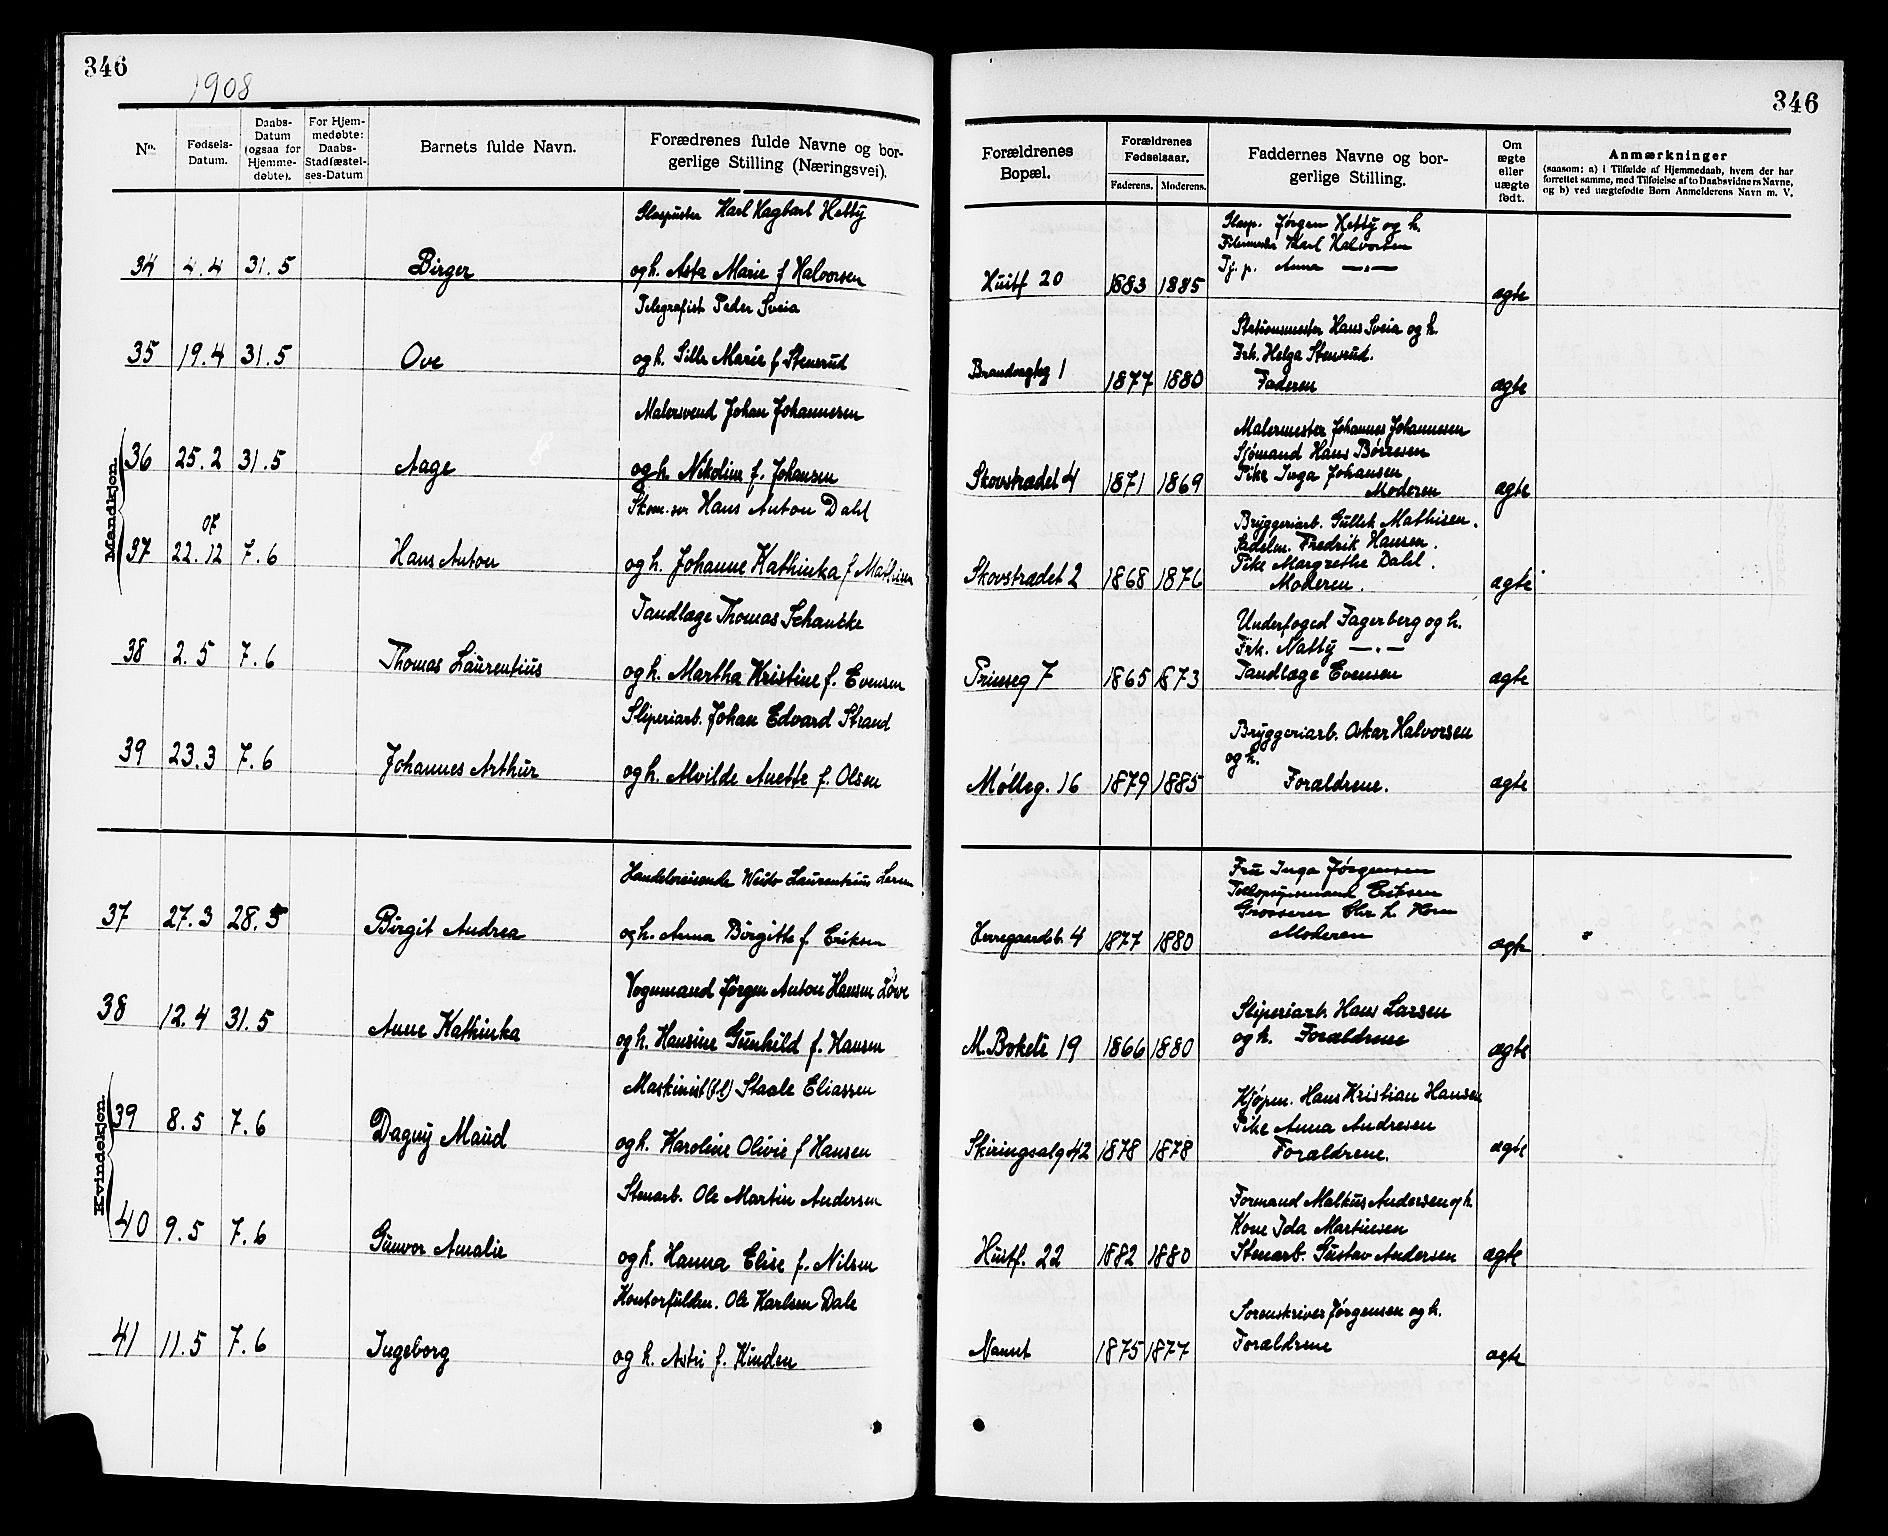 346
1908
No.
Fødsels-
Datum.
Daabs-
Datum
(ogsaa for
Hjemme-
døbte).
For Hjem-
medøbte:
Daabs-
Stadfæstel-
ses-Datum
Barnets fulde Navn.
Forædrenes fulde Navne og bor-
gerlige Stilling (Næringsvei).
Mandkjøn.
Glaspuster Karl Hagbart Hetty
34 4.4 31.5 Birger og h. Asta Marie f Halvorsen
Telegrafist Peder Sveia
35 19.4 31.5 Ove og h. Sille Marie f Stensrud
Malersvend Johan Johannesen
36 25.2 31.5 Aage og h. Nikoline f. Johansen
Skom. sv. Hans Anton Dahl
07
37 22.12 7.6 Hans Anton og h. Johanne Kathinka f Mathisen
Tandlæge Thomas Schancke
38 2.5 7.6 Thomas Laurentius og h. Martha Kristine f. Evensen
Sliperiarb. Johan Edvard Strand
39 23.3 7.6 Johannes Arthur og h. Alvilde Anette f. Olsen
Kvindekjøn.
Handelsreisende Laurentius Larsen
37 27.3 28.5 Birgit Andrea og h. Anna Birgitte f Eriksen
Vognmand Jørgen Anton Hansen Løve
38 12.4 31.5 Anne Kathinka og h. Hansine Gunhild f. Hansen
Maskinist Staale Eliassen
39 8.5 7.6 Dagny Maud og h. Karoline Olivie f Hansen
Stenarb. Ole Martin Andersen
40 9.5 7.6 Gunvor Amalie og h. Hanna Elise f. Nilsen
Kontorfuldm. Ole Karlsen Dale
41 11.5 7.6 Ingeborg og h. Astri f. Kinden
346
Forældrenes
Bopæl.
Forældrenes
Fødselsaar.
Faderens. Moderens.
Faddernes Navne og bor-
gerlige Stilling.
Om
ægte
eller
uægte
født.
Anmærkninger
(saasom: a) i Tilfælde af Hjemmedaab, hvem der har
forrettet samme, med Tilføielse af to Daabsvidners Navne,
og b) ved uægtefødte Børn Anmelderens Navn m. V.
Glasp. Jørgen Hetty og h.
Karl Halvorsen
Tj. p. Anna —„—
Huitf 20 1883 1885 ægte
Stationsmester Hans Sveia og h.
Frk. Helga Stensrud.
Brandvagtsg 1 1877 1880 Faderen ægte
Malermester Johannes Johannesen
Sjømand Hans Børresen
Pike Inga Johansen
Skovstrædet 4 1871 1869 Moderen ægte
Bryggeriarb. Gullik Mathisen.
Sadelm. Fredrik Hansen.
Pike Margrethe Dahl.
Skovstrædet 2 1868 1876 Moderen. ægte
Underfoged Fagerberg og h.
Frk. Natty —„—
Prinseg 7 1865 1873 Tandlæge Evensen ægte
Bryggeriarb. Oskar Halvorsen
og h.
Mølleg. 16 1879 1885 Forældrene. ægte
Fru Inga Jørgensen
Eriksen
Grosserer Chr L Horn
Herregaardsb. 4 1877 1880 Moderen ægte
Sliperiarb. Hans Larsen
M. Bakete 19 1866 1880 og h. Forældrene ægte
Kjøpm. Hans Kristian Hansen
Pike Anna Andresen
Skiringsalg 42 1878 1878 Forældrene. ægte
Formand Malkus Andersen og h.
Kone Ida Martinsen
Huitf. 22 1882 1880 Stenarb. Gustav Andersen ægte
Sorenskriver Jørgensen og h.
Nanset 1875 1877 Forældrene ægte